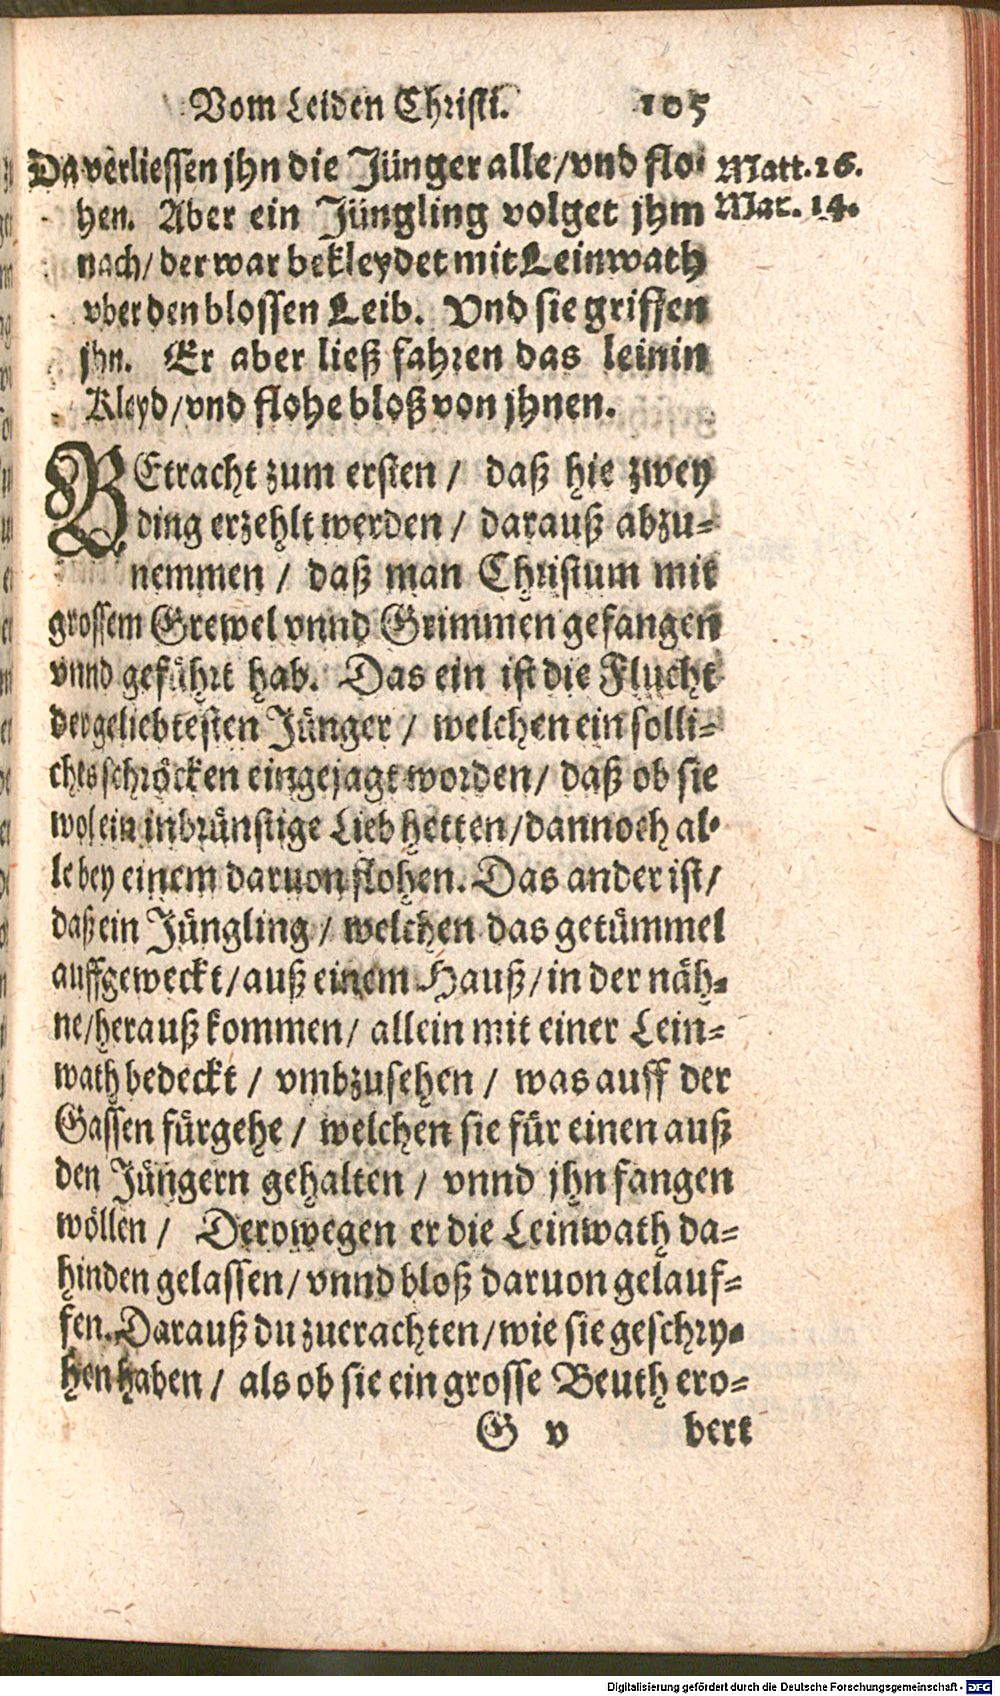 Vom Leiden Christi. 105
Da verliessen jhn die Jünger alle/vnd flo- Matt. 26.
hen. Aber ein Jüngling volget jhm Mar. 14.
nach/ der war bekleydet mit Leinwath
vber den blossen Leib. Vnd sie griffen
jhn. Er aber ließ fahren das leinin
Kleyd/vnd flohe bloß von jhnen.
BEtracht zum ersten / daß hie zwey
ding erzehlt werden / darauß abzu-
nemmen / daß man Christum mit
grossem Grewel vnnd Grimmen gefangen
vnnd geführt hab. Das ein ist die Flucht
der geliebtesten Jünger / welchen ein solli-
ches schröcken eingejagt worden/ daß ob sie
wol ein inbrünstige Lieb hetten/dannoch al-
le bey einem daruon flohen. Das ander ist/
daß ein Jüngling / welchen das getümmel
auffgeweckt/auß einem Hauß/in der näh-
ne/herauß kommen/ allein mit einer Lein-
wath bedeckt / vmbzusehen / was auff der
Gassen fürgehe / welchen sie für einen auß
den Jüngern gehalten / vnnd jhn fangen
wöllen / Derowegen er die Leinwath da-
hinden gelassen/vnnd bloß daruon gelauf-
fen. Darauß du zuerachten/wie sie geschry-
hen haben / als ob sie ein grosse Beuth ero-
G v bert
Digitalisierung gefördert durch die Deutsche Forschungsgemeinschaft - DFG